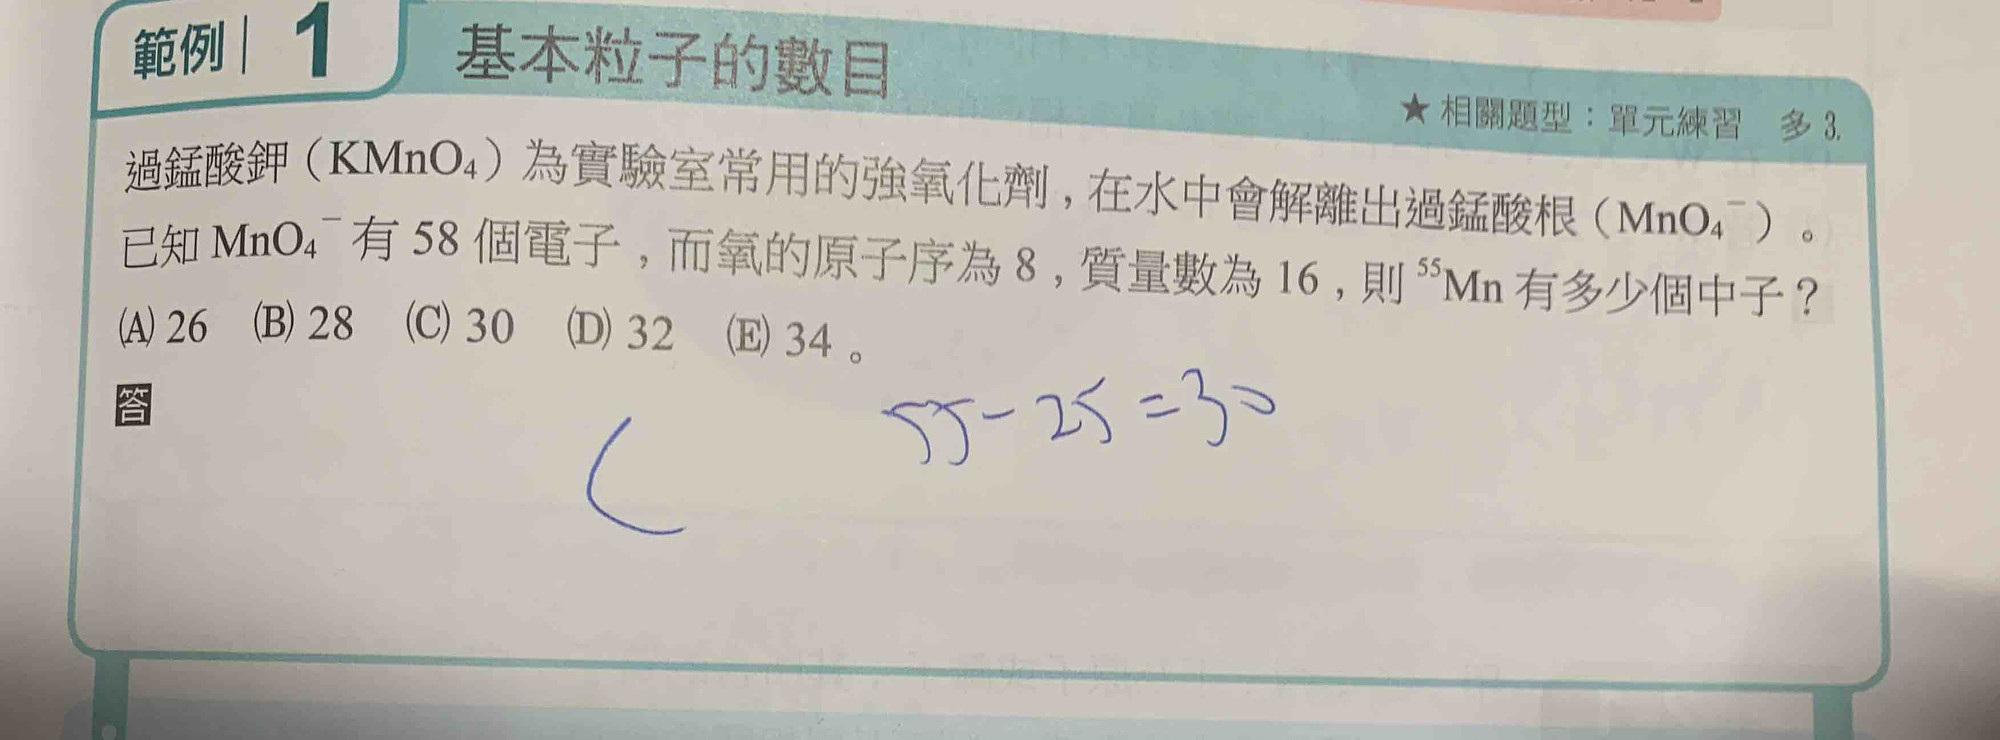 範例 1 基本粒子的數目
★相關題型：單元練習 多 3.
過錳酸鉀（KMnO₄）為實驗室常用的強氧化劑，在水中會解離出過錳酸根（MnO₄⁻）。
已知 MnO₄⁻ 有 58 個電子，而氧的原子序為 8，質量數為 16，則 ⁵⁵Mn 有多少個中子？
(A) 26 (B) 28 (C) 30 (D) 32 (E) 34。
答
C 55-25=30